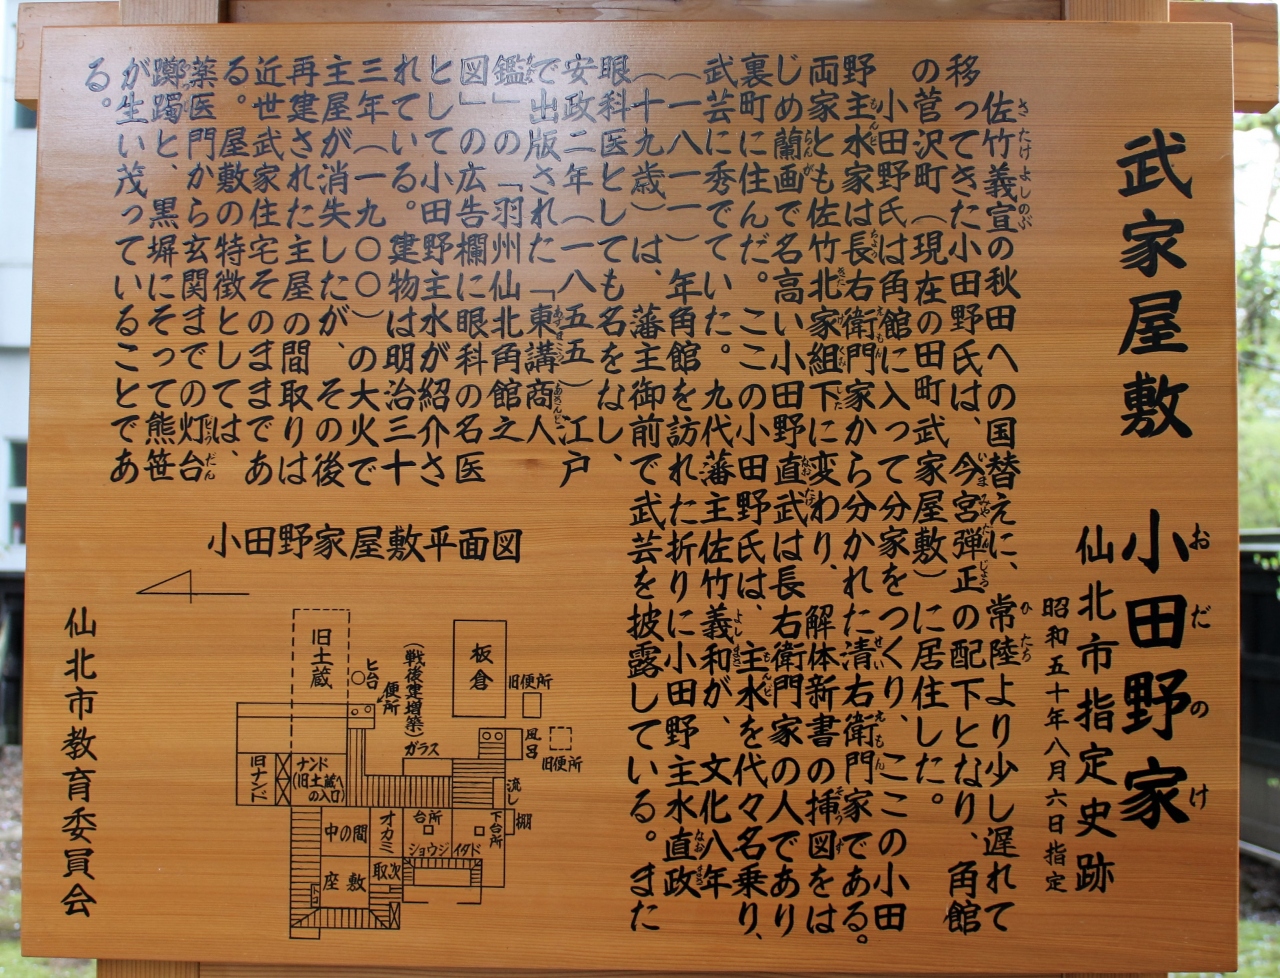 武家屋敷 小田野家
おだのけ
仙北市指定史跡
昭和五十年八月六日指定
佐竹義宣の秋田への国替えに、常陸より少し遅れて
移ってきた小田野氏は、今宮弾正の配下となり、角館
の菅沢町（現在の田町武家屋敷）に居住した。
小田野氏は角館に入って分家をつくり、ここの小田
野主水家は長右衛門家から分かれた清右衛門家である。
両家とも佐竹北家組下に変わり、解体新書の挿図をは
じめ蘭画で名高い小田野直武は長右衛門家の人であり
裏町に住んだ。ここの小田野氏は、主水を代々名乗り、
武芸に秀でていた。九代藩主佐竹義和が、文化八年
（一八一一）年角館を訪れた折りに小田野主水直政
（十九歳）は、藩主御前で武芸を披露している。また
眼科医としても名をなし、
安政二年（一八五五）江戸
で出版された「東講商人
鑑」の「羽州仙北角館之
図」の広告欄に眼科の名医
として小田野主水が紹介さ
れている。建物は明治三十
三年（一九〇〇）の大火で
主屋が消失したが、その後
再建された主屋の間取りは
近世武家住宅そのままであ
る。屋敷の特徴としては、
薬医門から玄関までの灯台
躑躅と、黒塀にそって熊笹
が生い茂っていることであ
る。
小田野家屋敷平面図
旧土蔵
ヒ台
便所
（戦後建増築）
板倉
旧便所
ガラス
風呂
旧便所
旧ナンド
ナンド
（旧土蔵へ
の入口）
流し
棚
中の間
オカミ
台所
下台所
ショウジ
イタド
座敷
取次
トコ
仙北市教育委員会